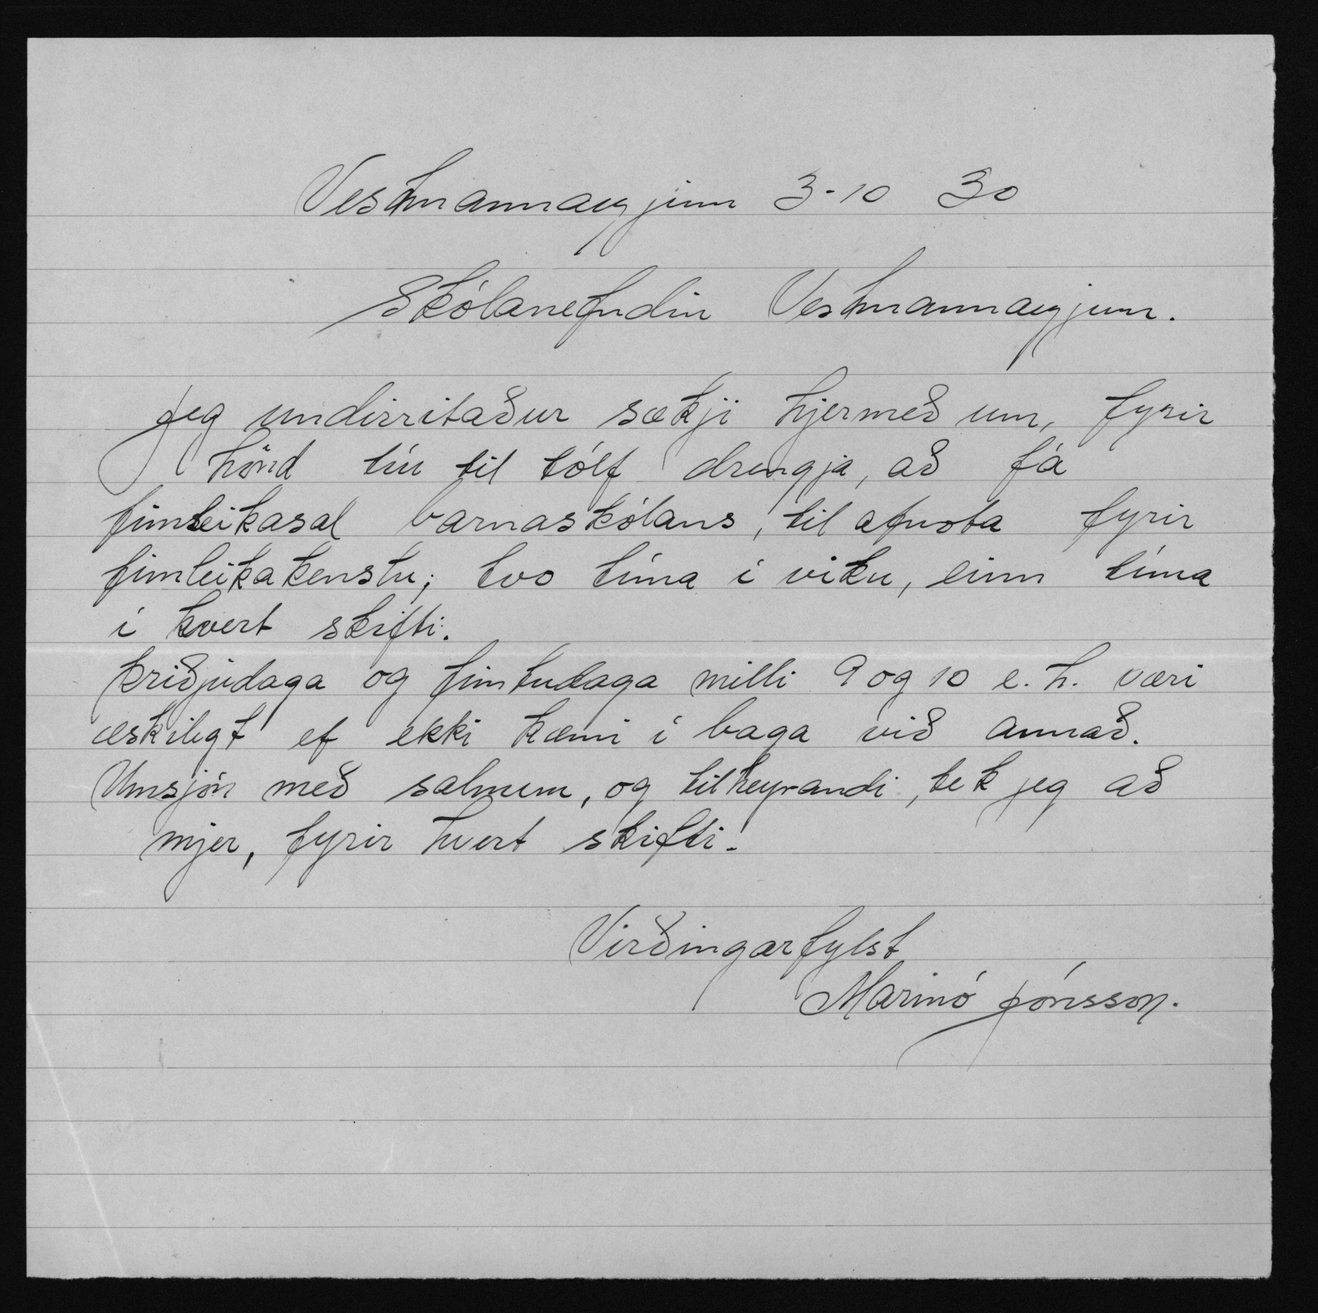 Vestmannaeyjum 3-10 30
Skólanefndin Vestmannaeyjum.
Jeg undirritaður sækji hjermeð um, fyrir
hönd tíu til tólf drengja, að fá
fimleikasal barnaskólans, til afnota fyrir
fimleikakenslu; tvo tíma í viku, einn tíma
í hvert skifti.
Þriðjudaga og fimtudaga milli 9 og 10 e.h. væri
æskiligt ef ekki kæmi í baga við annað.
Umsjón með salnum, og tilheyrandi, tek jeg að
mjer, fyrir hvert skifti.
Virðingarfylst
Marinó Jónsson.